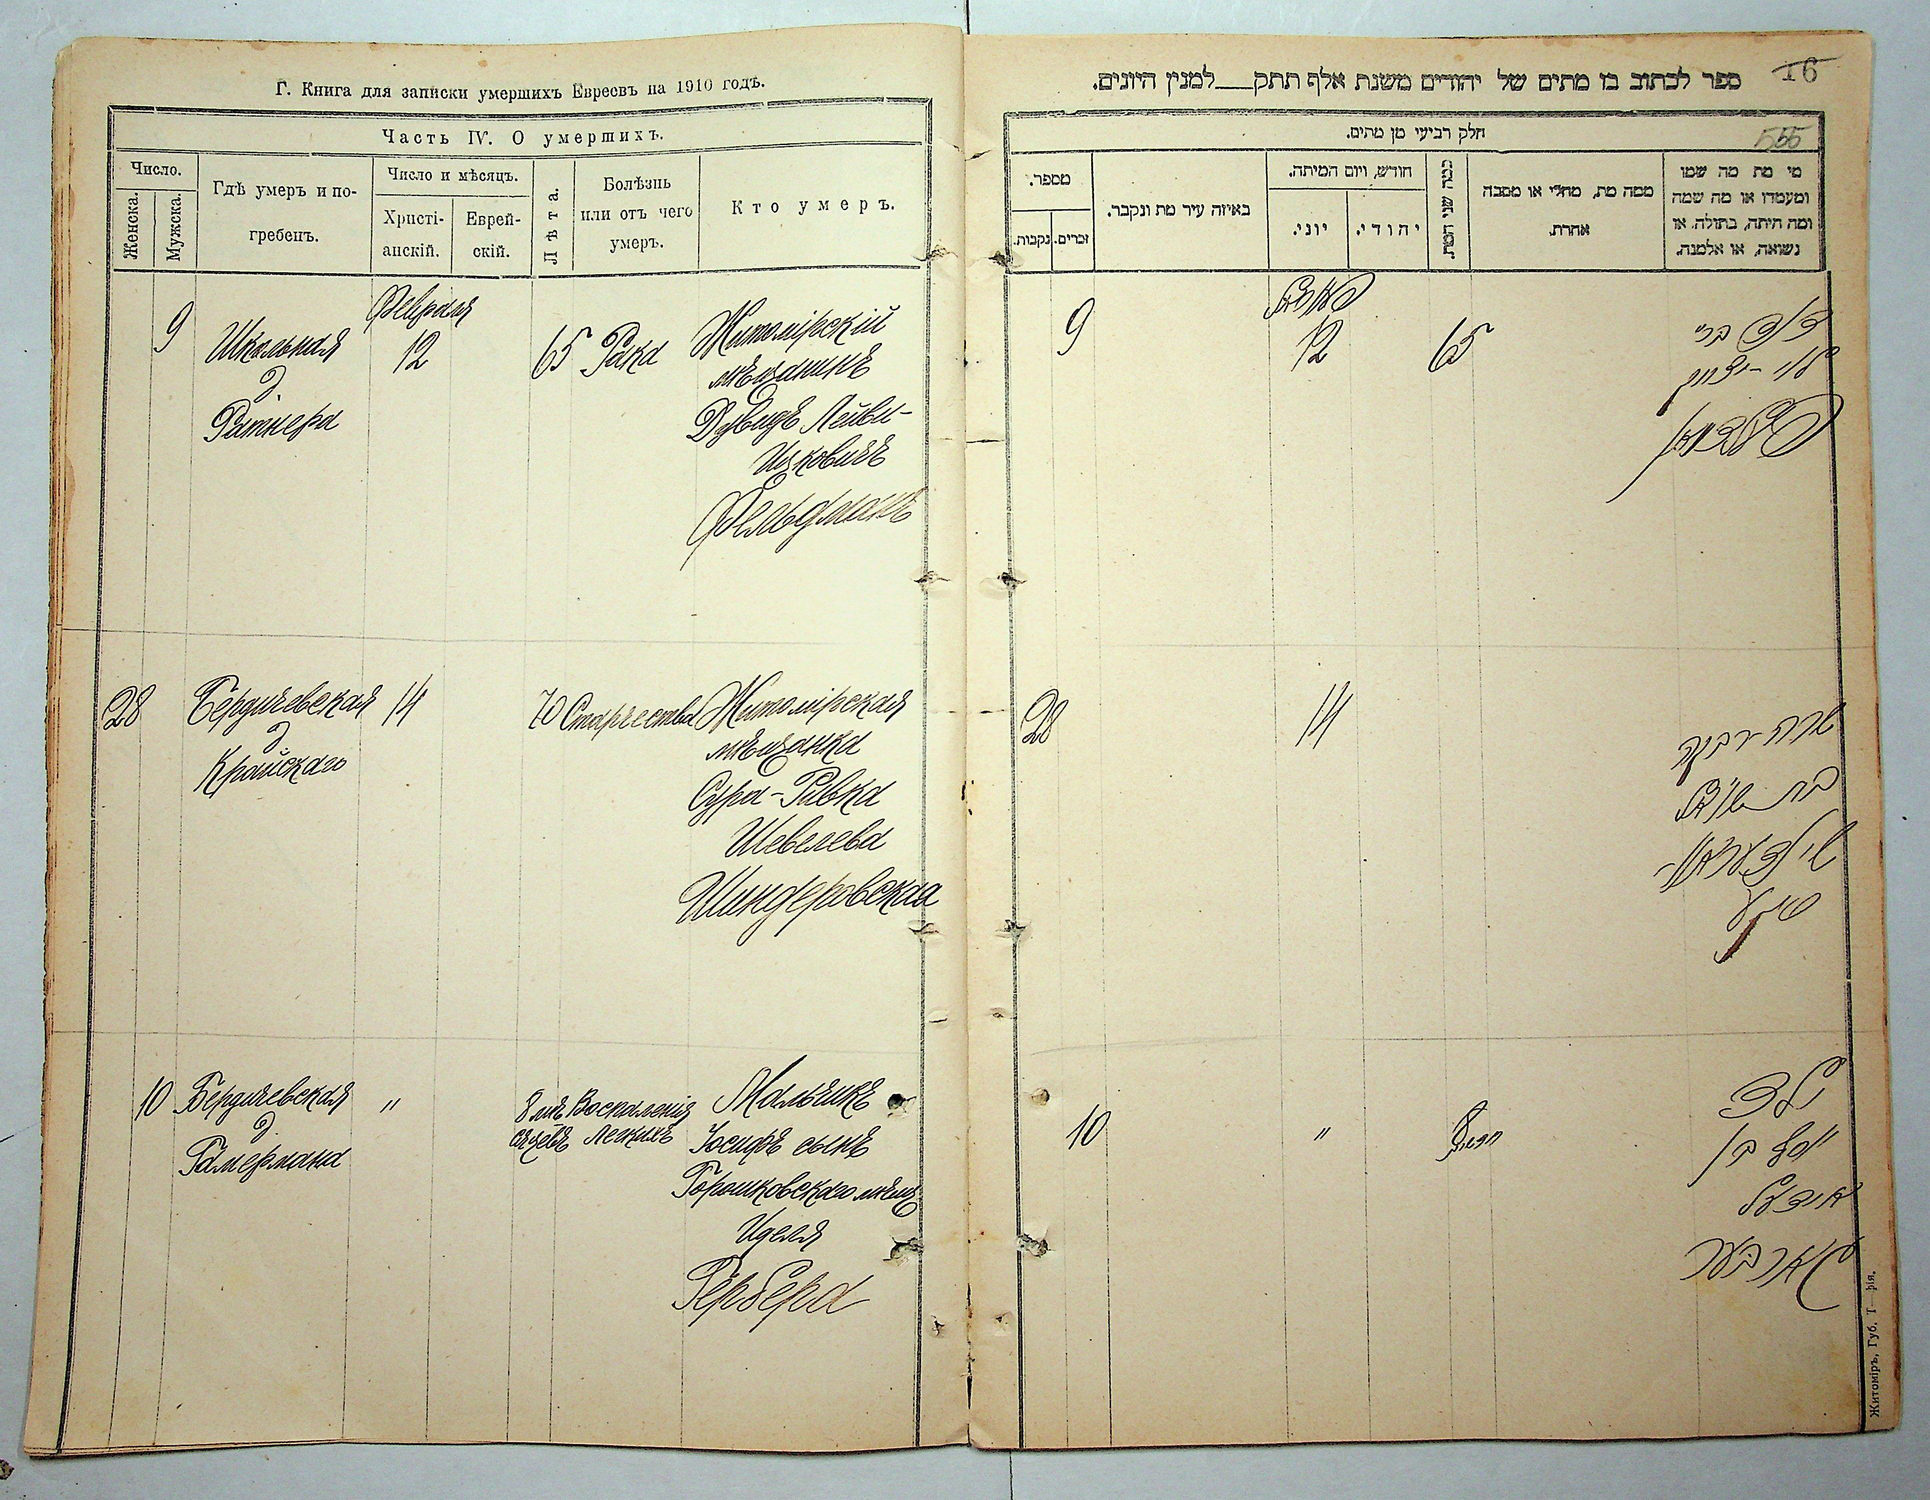 Г. Книга для записки умершихъ Евреевъ на 1910 годъ.
Часть IV. О умершихъ.
Число.
Женска.
Мужска.
Гдѣ умеръ и по-
гребенъ.
Число и мѣсяцъ.
Христі-
анскій.
Еврей-
скій.
Лѣта.
Болѣзнь
или отъ чего
умеръ.
Кто умеръ.
9
Школьная
д
Ратнера
Февраля
12
65
Рака
Житомірскій
мѣщанинъ
Дувидъ Лейви-
Ицковичъ
Фельдманъ
28
Бердичевская
д
Кройскаго
14
70
Старчества
Житомірская
мѣщанка
Сура-Ривка
Шевелева
Шиндеровская
10
Бердичевская
д
Гамермана
"
8 мѣ
сяцевъ
Воспаленія
легкихъ
Мальчикъ
Іосифъ сынъ
Горошковскаго мѣщ
Иделя
Гербера
16
ספר לכתוב בו מתים של יהודים משנת אלף תתק___למנין היונים.
555
חלק רביעי מן מתים.
מספר.
נקבות.
זכרים.
באיזה עיר מת ונקבר.
חודש, ויום המיתה.
יוני.
יהודי.
כמה שני המת.
ממה מת, מחלי או מסבה
אחרת.
מי מת מה שמו
ומעמדו או מה שמה
ומה היתה, בתולה, או
נשואה, או אלמנה.
9
12
65
דוד בר'
לוי-יצחק
פעלדמאן
28
14
שרה רבקה
בת
10
"
8
ילד
יוסף בן
אידעל
גארבער
Житоміръ, Губ. Т—рія.